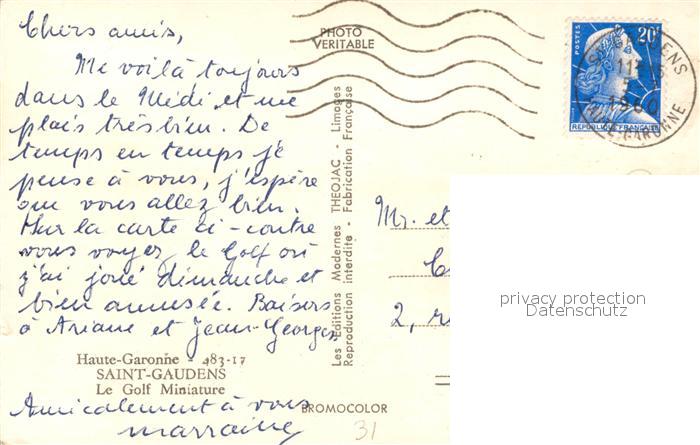 Chers amis,
Me voilà toujours
dans le Midi et me
plais très bien. De
temps en temps je
pense à vous, j'espère
que vous allez bien.
Sur la carte ci-contre
vous voyez le Golf où
j'ai joué dimanche et
bien amusée. Baisers
à Ariane et Jean-Georges
Haute-Garonne - 483-17
SAINT-GAUDENS
Le Golf Miniature
Amicalement à vous
marraine
PHOTO
VERITABLE
Les Editions Modernes THEOJAC Limoges
Reproduction interdite - Fabrication Française
BROMOCOLOR
31
POSTES
20F
REPUBLIQUE FRANÇAISE
ST GAUDENS
1960
HTE-GARONNE
Mr. et
2, r
privacy protection
Datenschutz